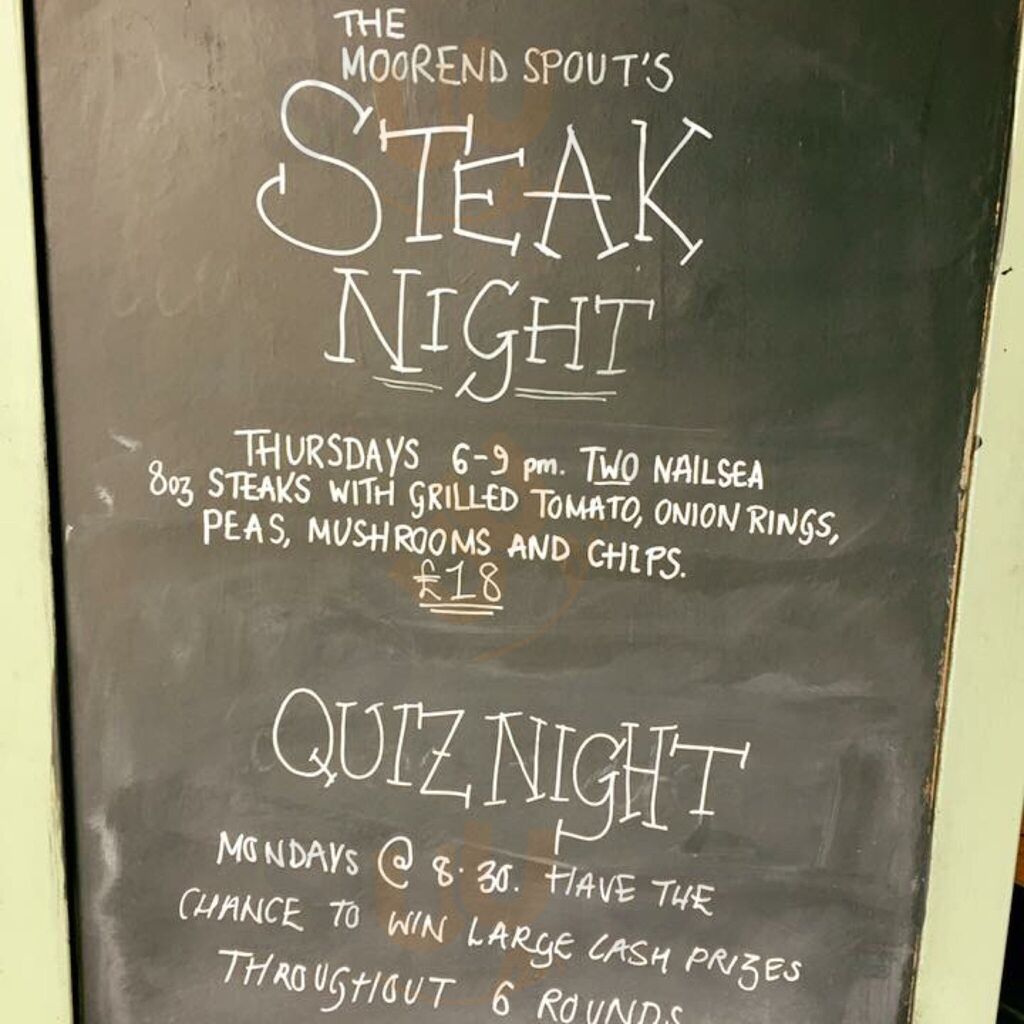 THE
MOOREND SPOUT'S
STEAK
NIGHT
THURSDAYS 6-9 pm. TWO NAILSEA
8oz STEAKS WITH GRILLED TOMATO, ONION RINGS,
PEAS, MUSHROOMS AND CHIPS.
£18
QUIZ NIGHT
MONDAYS @ 8.30. HAVE THE
CHANCE TO WIN LARGE CASH PRIZES
THROUGHOUT 6 ROUNDS